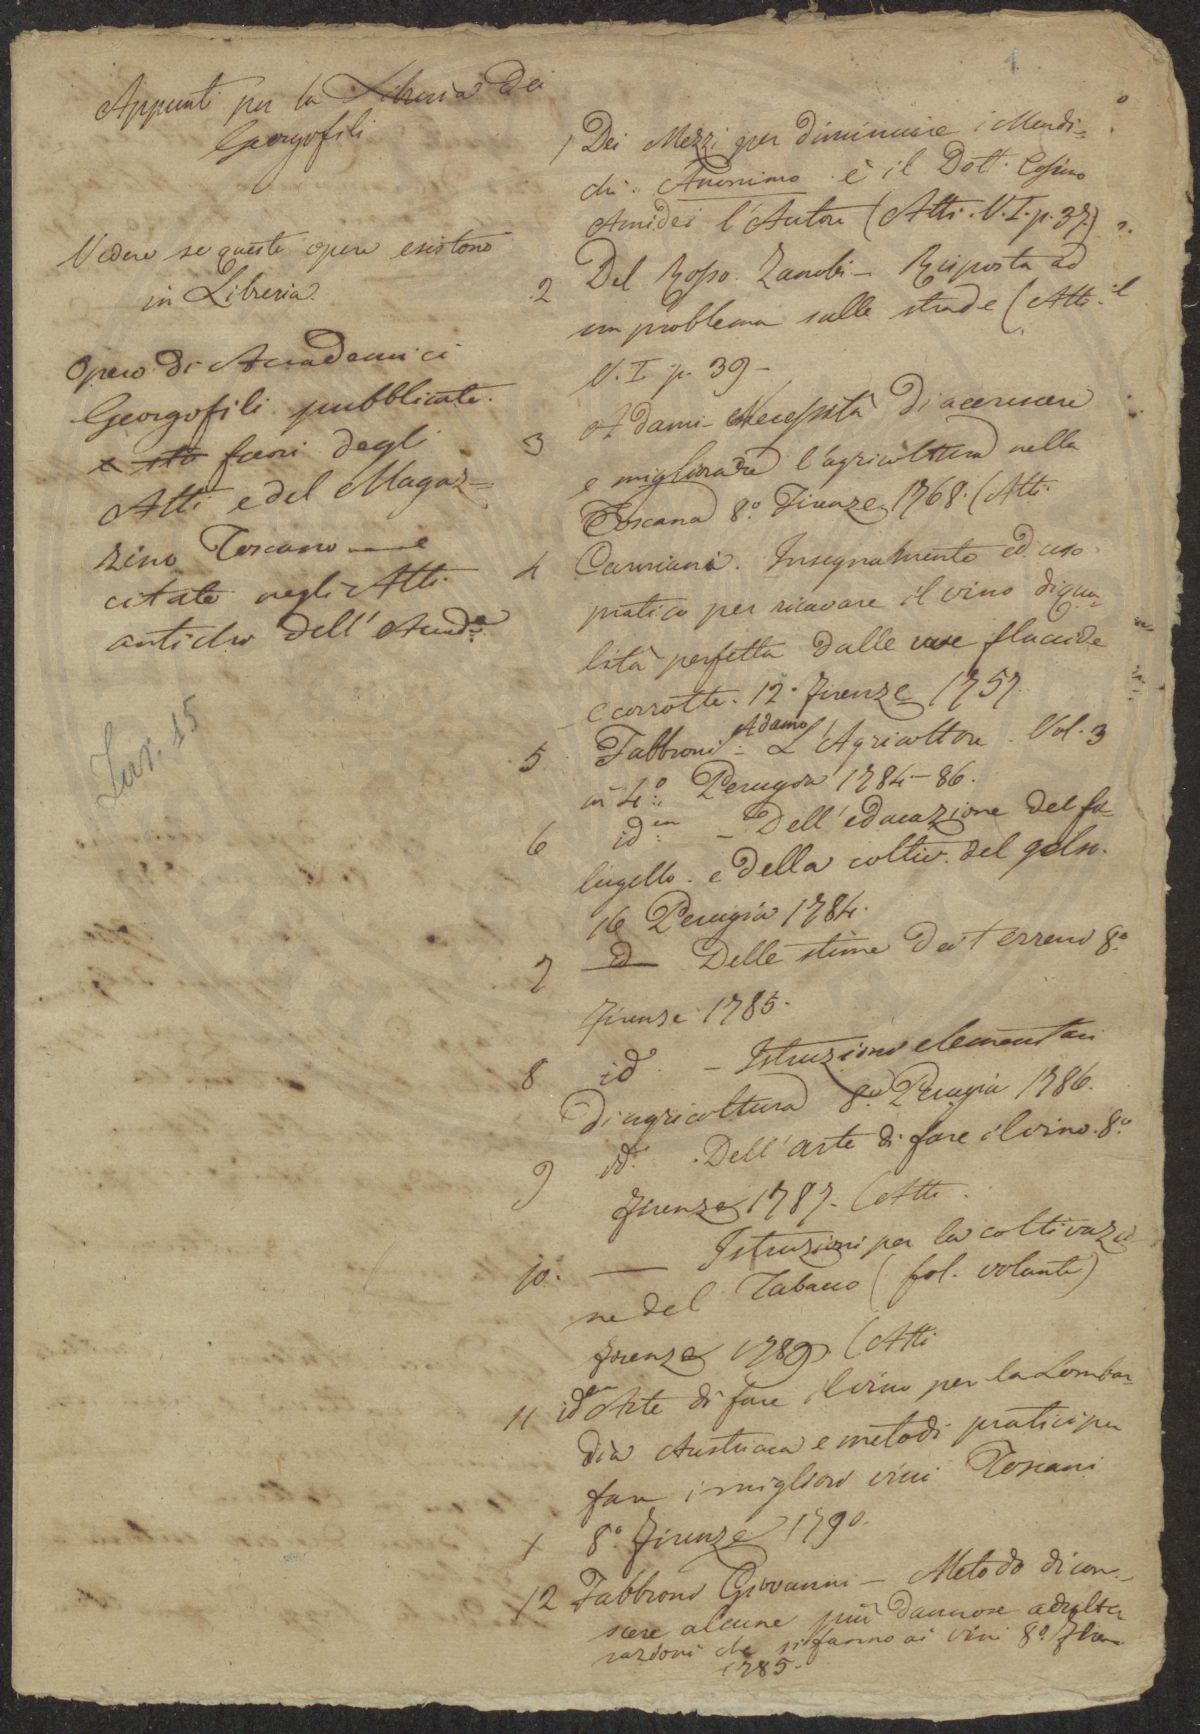 1
Appunti per la Libreria dei
Georgofili
Vedere se queste opere esistono
in Libreria.
Opere di Accademici
Georgofili pubblicate
fuori degli
Atti e del Magaz=
zino Toscano e
citate negli Atti
antichi dell'Accad.a
Inv. 15
1 Dei Mezzi per diminuire i Mendi=
chi. Anonimo. è il Dott. Cosimo
Amidei l'Autore (Atti. V. I. p. 37.)
2 Del Rosso. Zanobi - Risposta ad
un problema sulle strade (Atti.
V. I p. 39 -
3 Adami - Necessità di accrescere
e migliorare l'agricoltura nella
Toscana 8.o Firenze 1768. (Atti.
4 Canniani. Insegnamento ed uso
pratico per ricavare il vino di qua=
lità perfetta dalle uve flacide
e corrotte. 12. Firenze 1757.
5 Fabbroni Adamo - L'Agricoltore. Vol. 3
in 4.o Perugia 1784-86.
6 id.m - Dell'educazione del fi=
lugello. e della coltiv. del gelso.
16 Perugia 1784.
7 id Delle stime dei terreni 8.o
Firenze 1785.
8 id. - Istruzioni elementari
di agricoltura 8.o Perugia 1786.
9 id. Dell'arte di fare il vino. 8.o
Firenze 1787. (Atti.
10. — Istruzioni per la coltivazio
ne del Tabacco (fol. volante)
Firenze 1789. (Atti
11 id.m Arte di fare il vino per la Lombar=
dia Austriaca e metodi pratici per
fare i migliori vini Toscani
x 8.o Firenze 1790.
12 Fabbroni Giovanni - Metodo di cono=
scere alcune più dannose adulte=
razioni che si fanno ai vini 8.o Firen
1785.